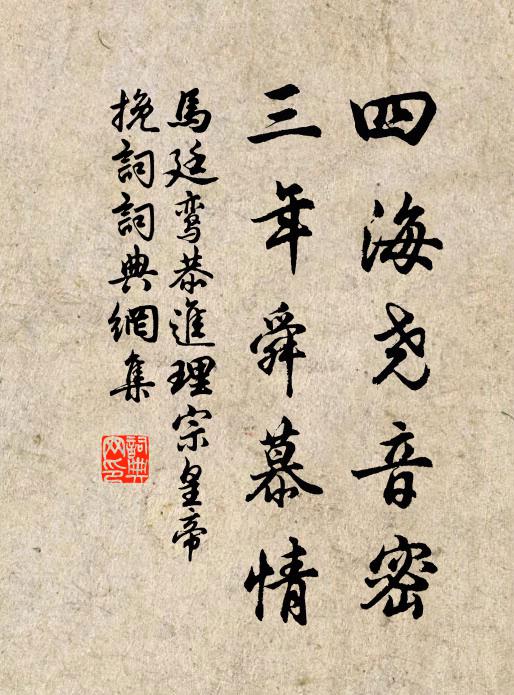 四海尧音密
三年舜慕情
馬廷鸾恭進理宗皇帝
挽詞詞典網集
詞典网印